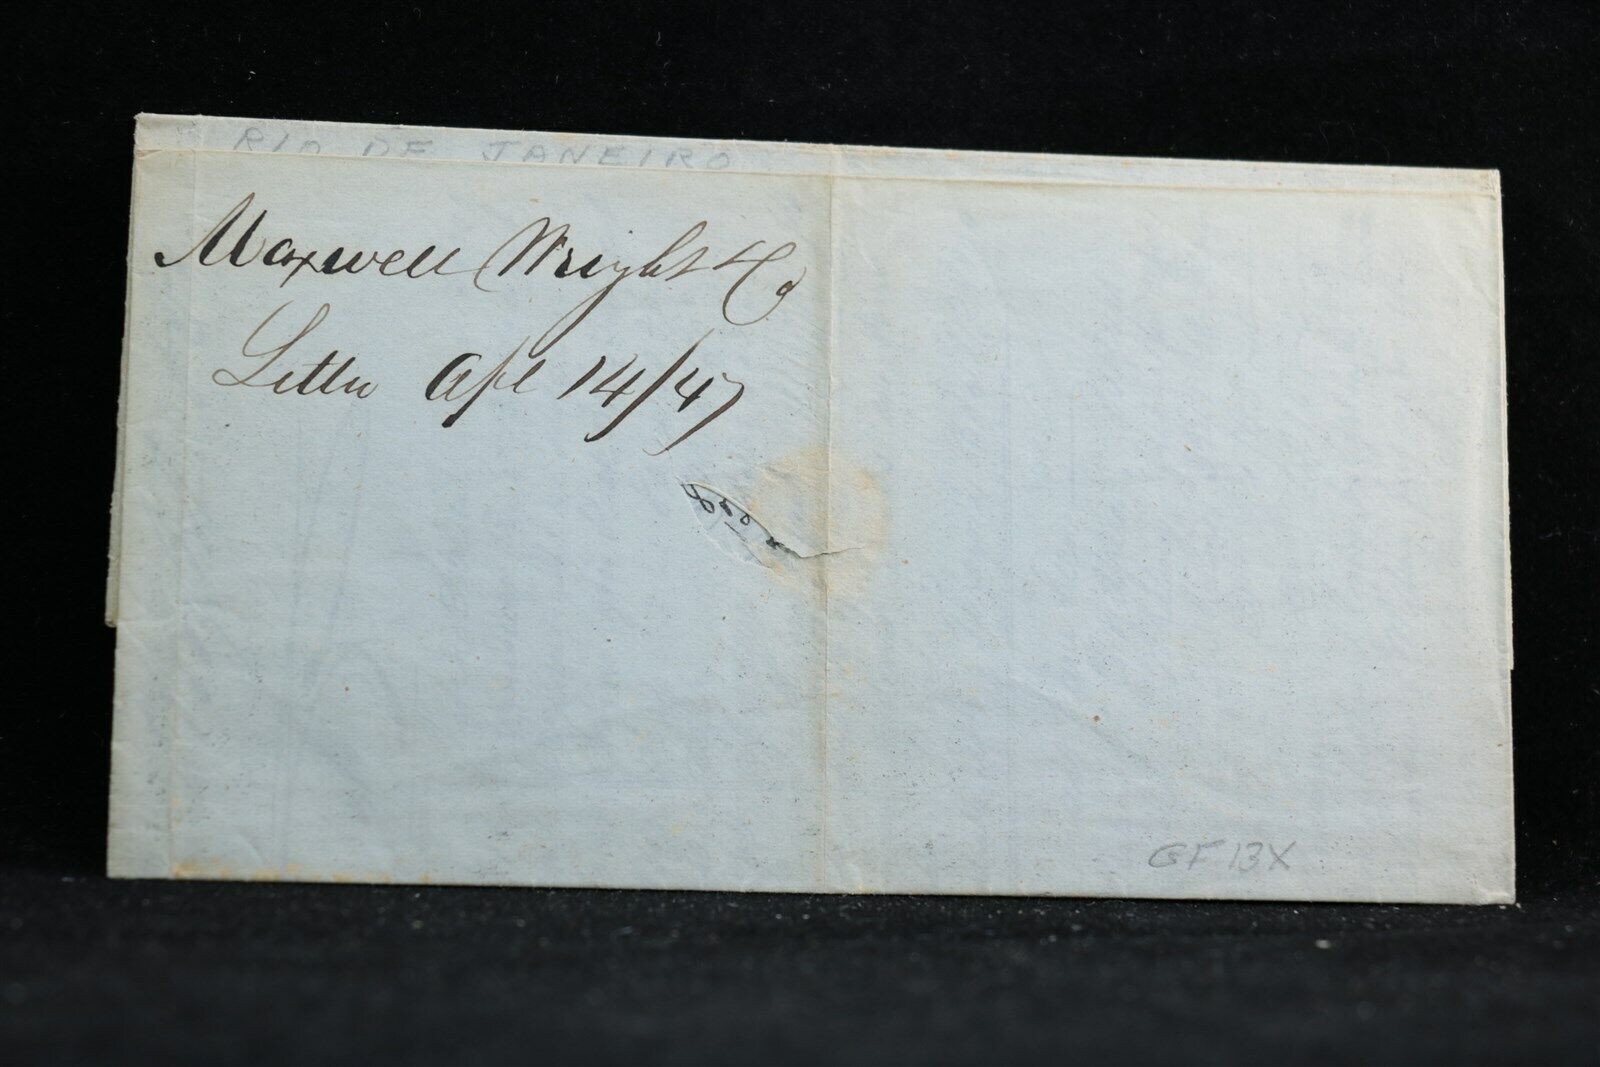 RIO DE JANEIRO
Maxwell Wright & Co
Letter Apl 14/47
GF 13X